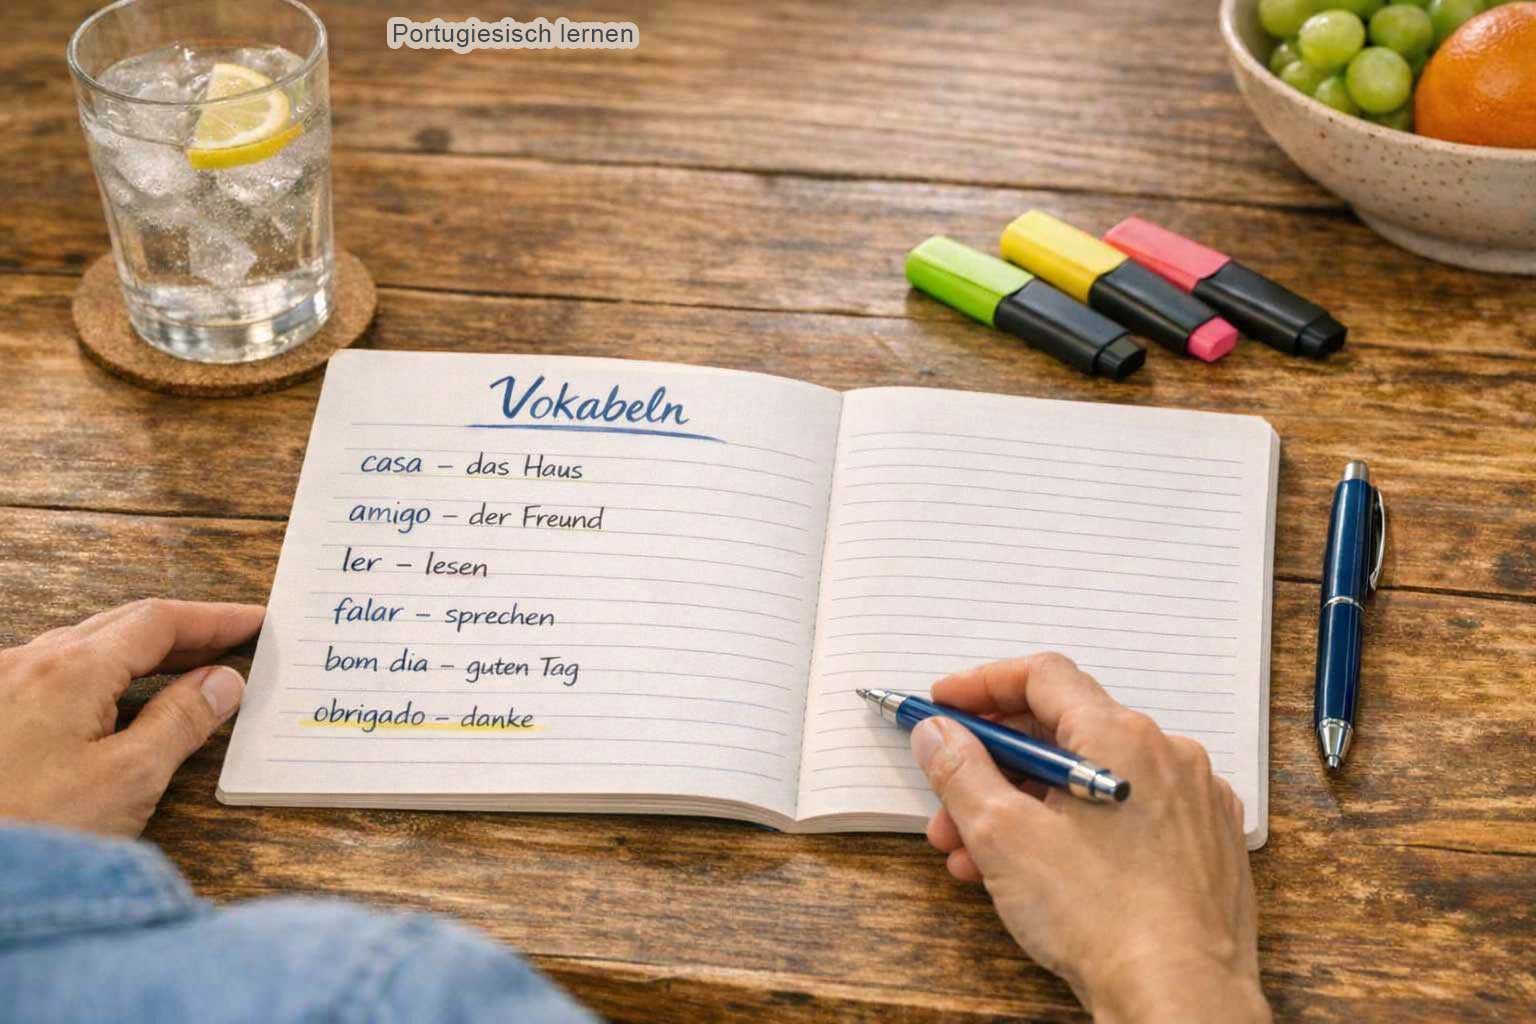 Portugiesisch lernen
Vokabeln
casa – das Haus
amigo – der Freund
ler – lesen
falar – sprechen
bom dia – guten Tag
obrigado – danke